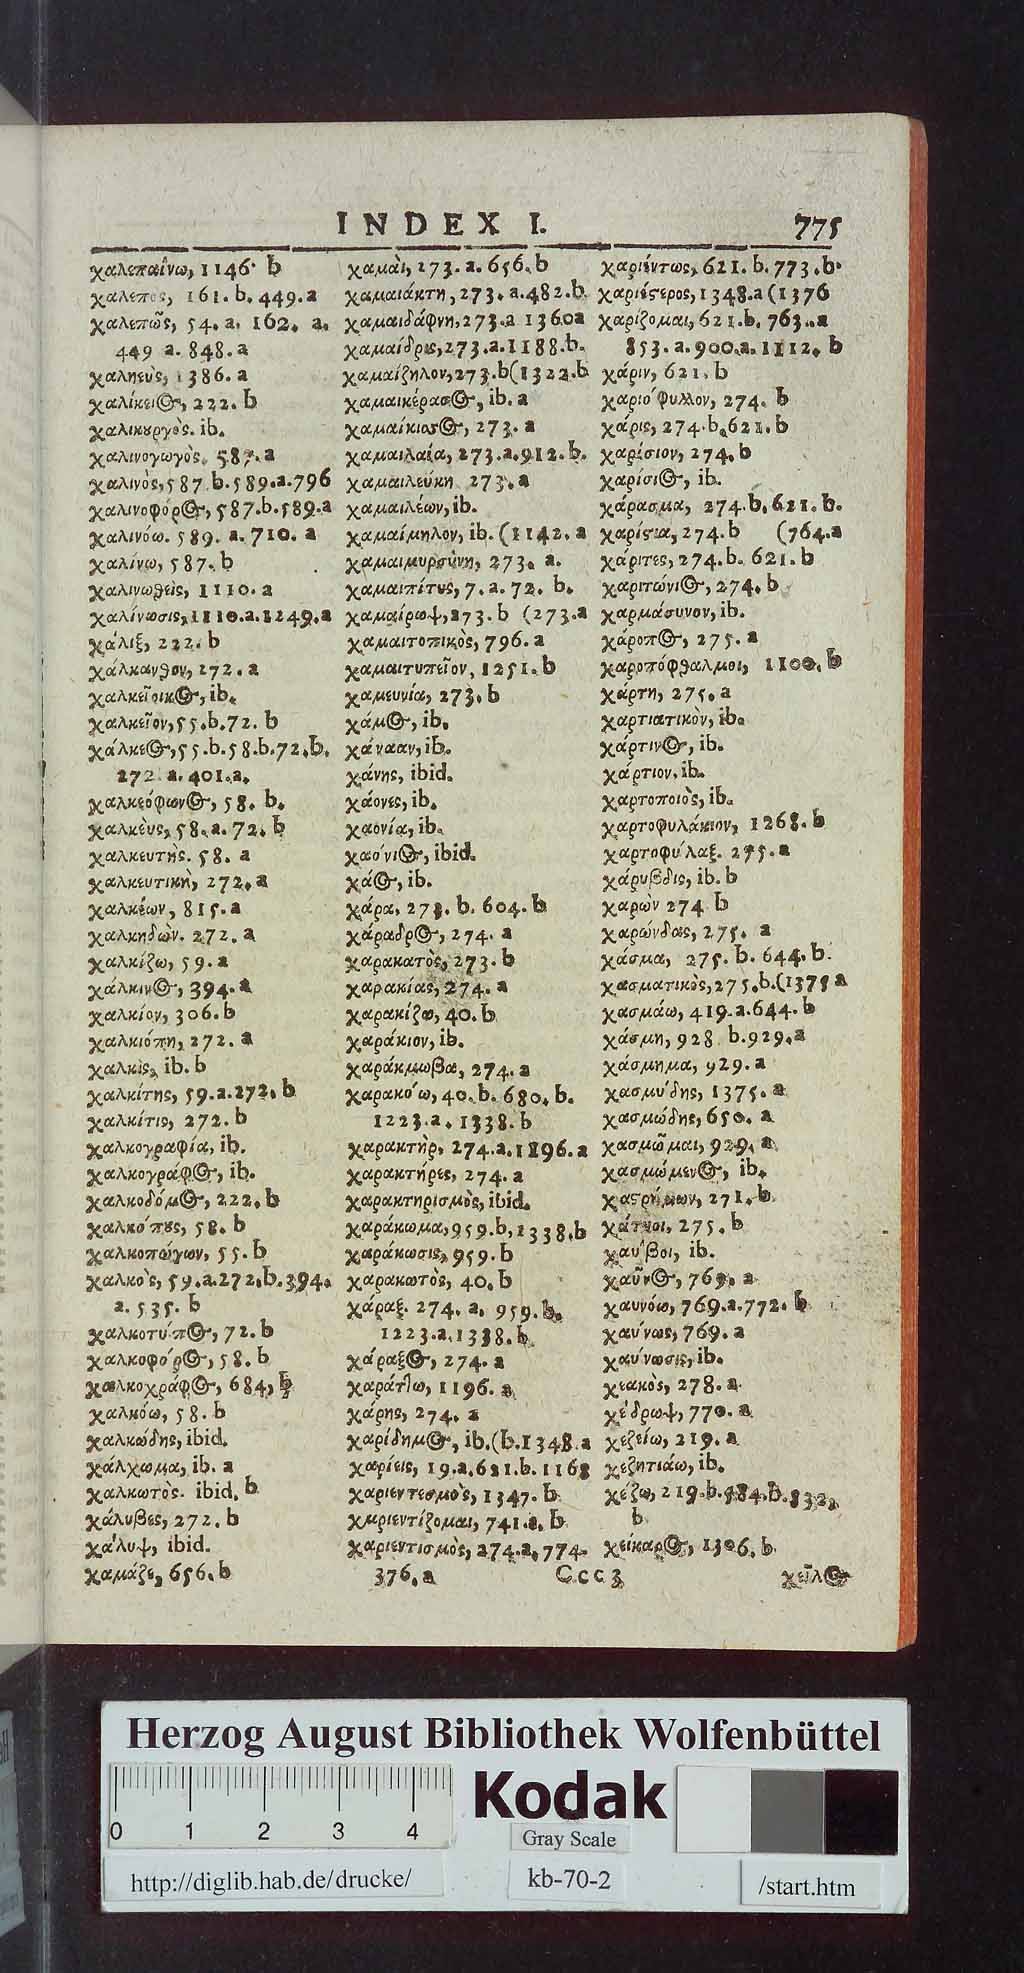 INDEX I. 775
χαλεπαίνω, 1146. b
χαλεπος, 161. b. 449. a
χαλεπῶς, 54. a. 162. a.
449 a. 848. a
χαληεὺς, 1386. a
χαλίκειος, 222. b
χαλικουργὸς. ib.
χαλιναγωγὸς. 587. a
χαλινὸς, 587 b. 589. a. 796
χαλινοφόρος, 587. b. 589. a
χαλινόω. 589. a. 710. a
χαλίνω, 587. b
χαλινωθεὶς, 1110. a
χαλίνωσις, 1110. a. 1249. a
χάλιξ, 222. b
χάλκανθον, 272. a
χαλκεῖοικος, ib.
χαλκεῖον, 55. b. 72. b
χάλκεος, 55. b. 58. b. 72. b.
272. a. 401. a.
χαλκεόφωνος, 58. b.
χαλκὲυς, 58. a. 72. b
χαλκευτὴς. 58. a
χαλκευτικὴ, 272. a
χαλκέων, 815. a
χαλκηδὼν. 272. a
χαλκίζω, 59. a
χάλκινος, 394. a
χαλκίον, 306. b
χαλκιόπη, 272. a
χαλκὶς, ib. b
χαλκίτης, 59. a. 272. b
χαλκίτις, 272. b
χαλκογραφία, ib.
χαλκογράφος, ib.
χαλκοδόμος, 222. b
χαλκόπους, 58. b
χαλκοπώγων, 55. b
χαλκὸς, 59. a. 272. b. 394.
a. 535. b
χαλκοτύπος, 72. b
χαλκοφόρος, 58. b
χαλκοχράφος, 684, b
χαλκόω, 58. b
χαλκώδης, ibid.
χάλχωμα, ib. a
χαλκωτὸς. ibid. b
χάλυβες, 272. b
χάλυψ, ibid.
χαμάζε, 656. b
χαμαὶ, 273. a. 656. b
χαμαιάκτη, 273. a. 482. b.
χαμαιδάφνη, 273. a 1360a
χαμαίδρις, 273. a. 1188. b.
χαμαίζηλον, 273. b (1322. b
χαμαικέρασος, ib. a
χαμαίκισσος, 273. a
χαμαιλαία, 273. a. 912. b.
χαμαιλεύκη 273. a
χαμαιλέων, ib.
χαμαίμηλον, ib. (1142. a
χαμαιμυρσύνη, 273. a.
χαμαιπίτυς, 7. a. 72. b.
χαμαίρωψ, 273. b (273. a
χαμαιτοπικὸς, 796. a
χαμαιτυπεῖον, 1251. b
χαμευνία, 273. b
χάμος, ib.
χάνααν, ib.
χάνης, ibid.
χάονες, ib.
χαονία, ib.
χαόνιος, ibid.
χάος, ib.
χάρα, 273. b. 604. b
χάραδρος, 274. a
χαρακατὸς, 273. b
χαρακίας, 274. a
χαρακίζω, 40. b
χαράκιον, ib.
χαράκμωβα, 274. a
χαρακόω, 40. b. 680. b.
1223. a. 1338. b
χαρακτὴρ, 274. a. 1196. a
χαρακτήρες, 274. a
χαρακτηρισμὸς, ibid.
χαράκωμα, 959. b, 1338. b
χαράκωσις, 959. b
χαρακωτὸς, 40. b
χάραξ. 274. a. 959. b.
1223. a. 1338. b
χάραξος, 274. a
χαράττω, 1196. a
χάρης, 274. a
χαρίδημος, ib. (b. 1348. a
χαρίεις, 19. a. 621. b. 1168
χαριεντεσμὸς, 1347. b
χμριεντίζομαι, 741. a. b
χαριεντισμὸς, 274. a. 774.
376. a
χαριέντως, 621. b. 773. b.
χαριέστερος, 1348. a (1376
χαρίζομαι, 621. b. 763. a
853. a. 900. a. 1112. b
χάριν, 621. b
χαριόφυλλον, 274. b
χάρις, 274. b. 621. b
χαρίσιον, 274. b
χαρίσιος, ib.
χάρασμα, 274. b. 621. b.
χαρίστια, 274. b (764. a
χάριτες, 274. b. 621. b
χαριτώνιος, 274. b
χαρμάσυνον, ib.
χάροπος, 275. a
χαροπόφθαλμοι, 1100. b
χάρτη, 275. a
χαρτιατικὸν, ib.
χάρτινος, ib.
χάρτιον, ib.
χαρτοποιὸς, ib.
χαρτοφυλάκιον, 1268. b
χαρτοφύλαξ. 275. a
χάρυβδις, ib. b
χαρὼν 274 b
χαρώνδας, 275. a
χάσμα, 275. b. 644. b.
χασματικὸς, 275. b. (1375 a
χασμάω, 419. a. 644. b
χάσμη, 928 b. 929. a
χάσμημα, 929. a
χασμύδης, 1375. a
χασμώδης, 650. a
χασμῶμαι, 929. a
χασμώμενος, ib.
271. b
275. b
χαύβοι, ib.
χαῦνος, 769. a
χαυνόω, 769. a. 772. b
χαύνως, 769. a
χαύνωσις, ib.
χεακὸς, 278. a
χέδρωψ, 770. a
χεζείω, 219. a
χεζητιάω, ib.
χέζω, 219. b. 584. b. 832.
b
χείκαρος, 1306. b
Cccc 3 χεῖλος
Herzog August Bibliothek Wolfenbüttel
0 1 2 3 4
Kodak
Gray Scale
http://diglib.hab.de/drucke/ kb-70-2 /start.htm